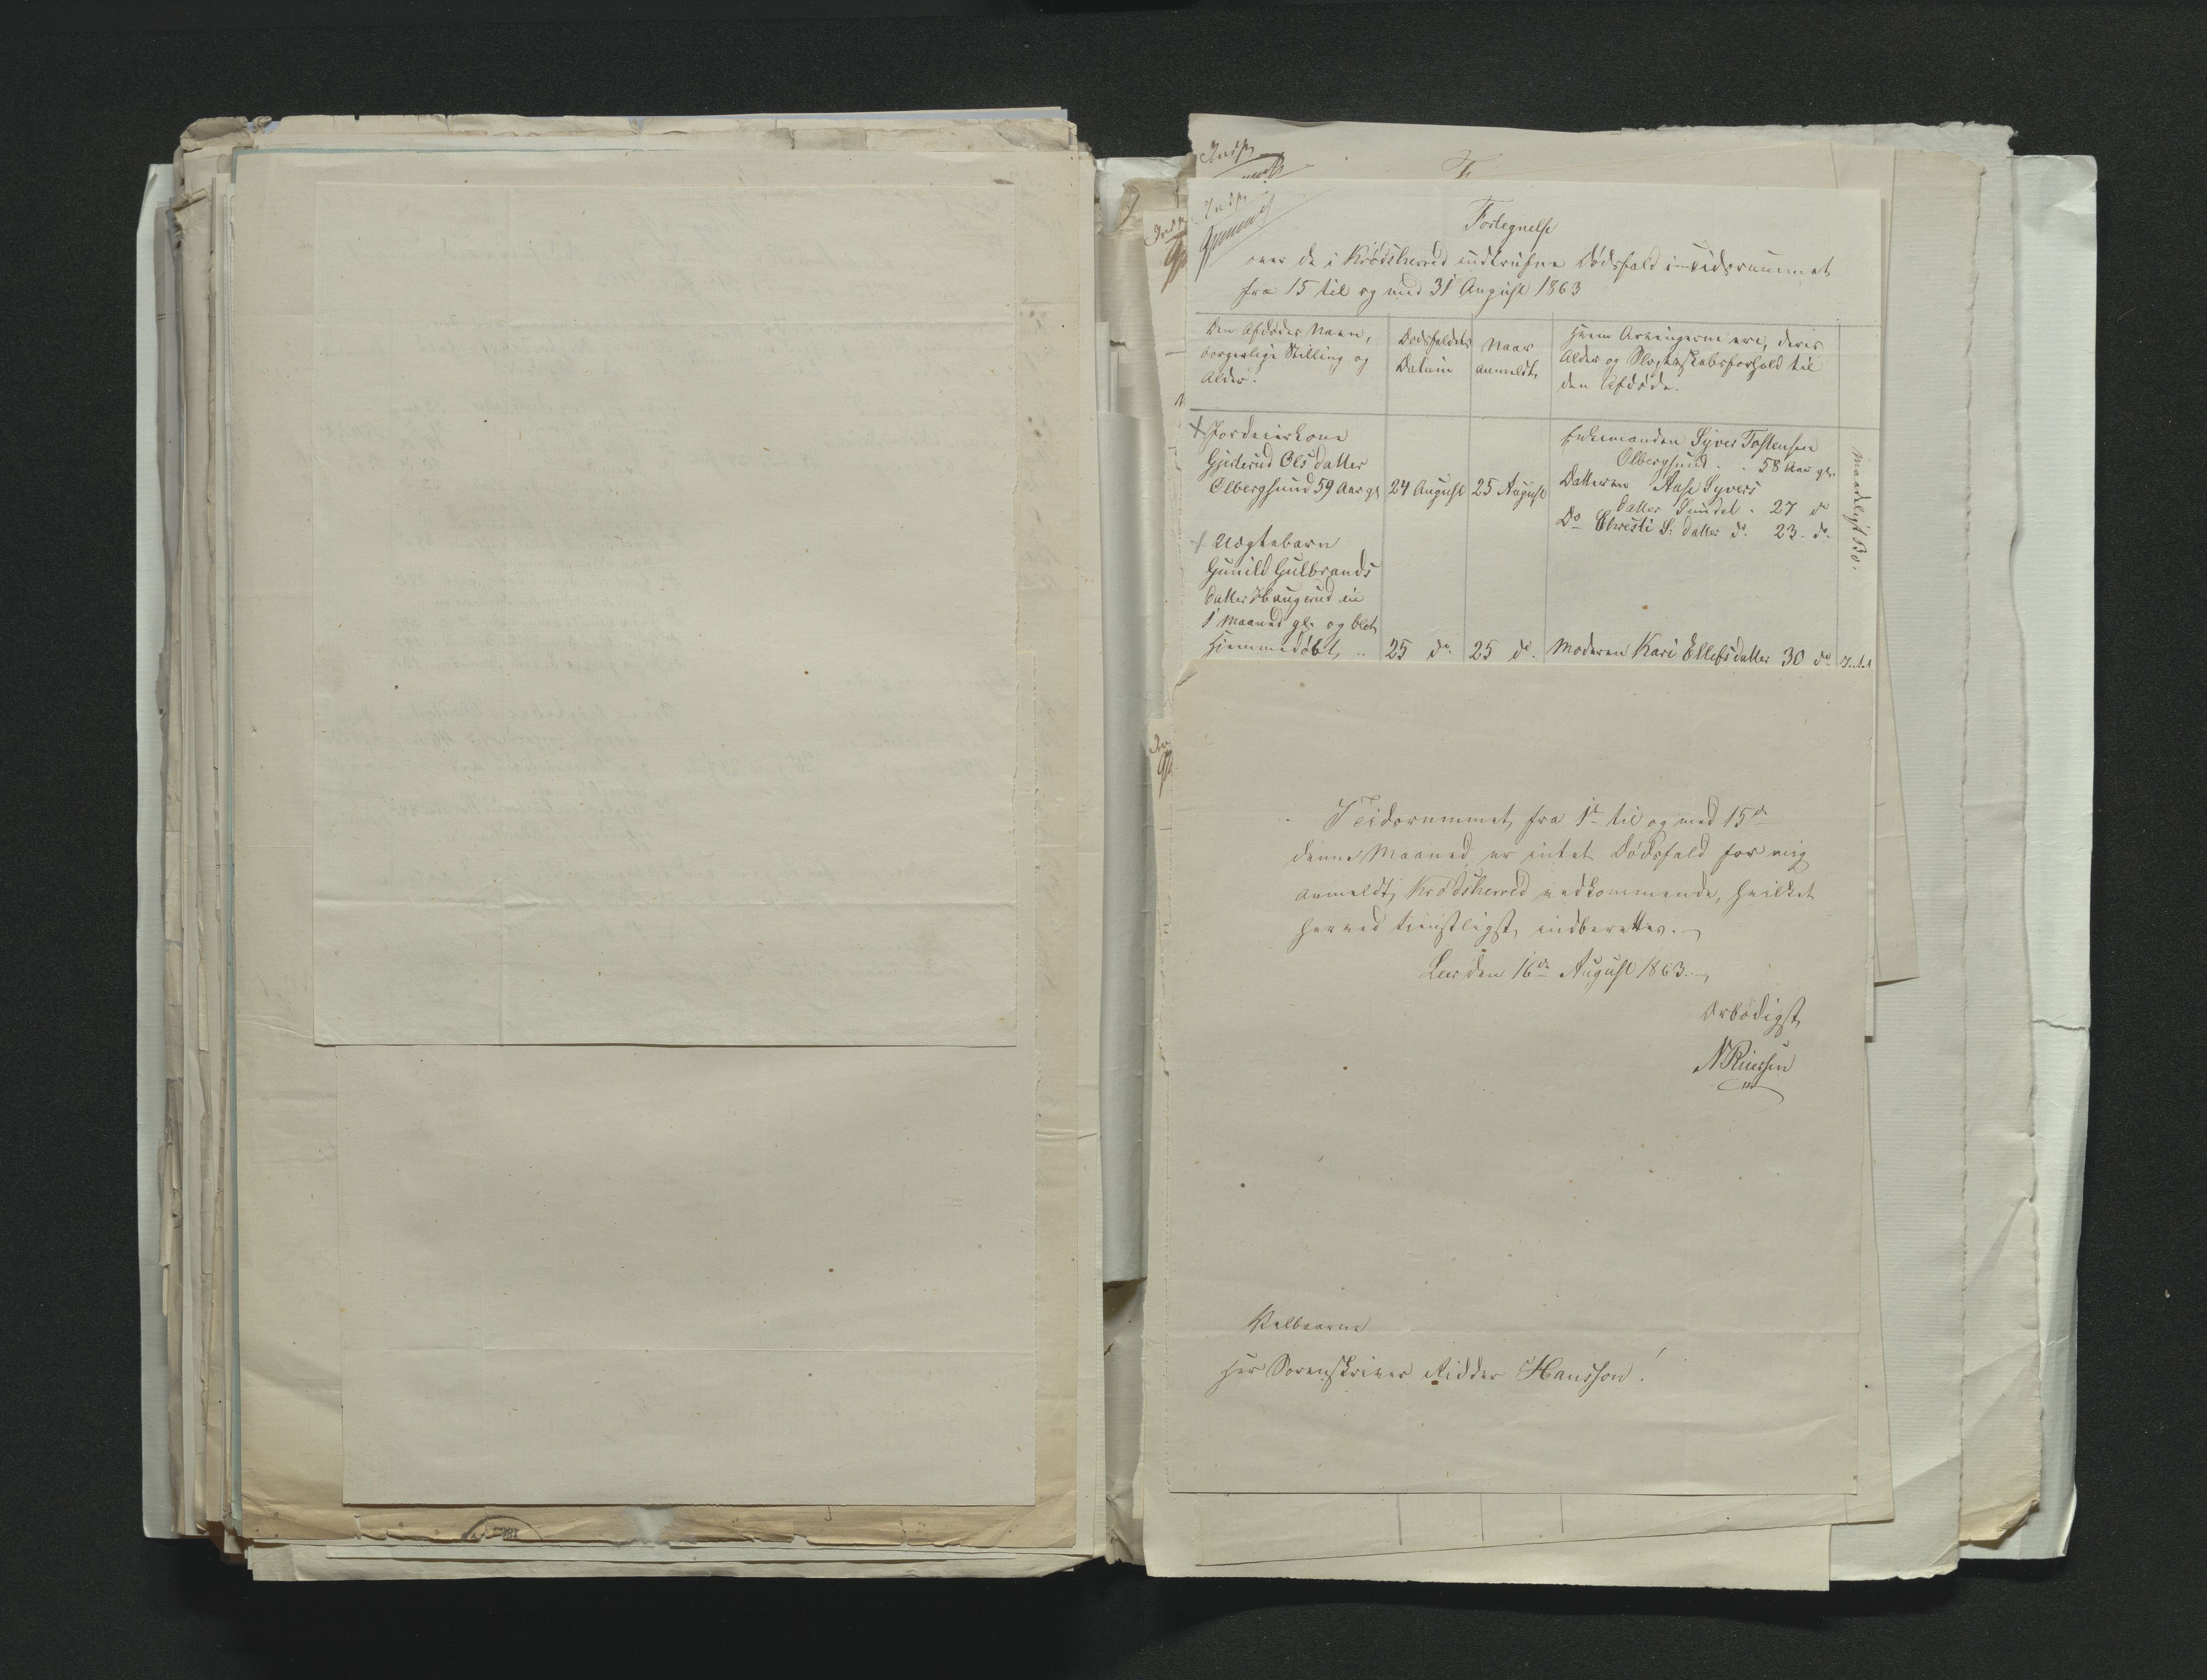 Indf
Fortegnelse
over de i Krødsherred indtrufne Dødsfald i Tidsrummet
fra 15 til og med 31 August 1863
Den Afdødes Navn,
borgerlige Stilling og
Alder.
Dødsfaldets
Datum
Naar
anmeldt,
Hvem Arvingerne ere, deres
Alder og Slægtskabsforhold til
den Afdøde.
Jordeierkone
Gjertrud Olsdatter
Olbergsund 59 Aar gl
24 August
25 August
Enkemanden Syver Tostensen
Olbergsund . . 58 Aar gl.
Datteren Aase Syvers
datter Smidel . 27 do
Do Christi S. datter do. 23. do.
Myndligt Bo.
Uægtebarn
Gunild Gulbrands
datter Haugerud en
1 Maaned gl. og blot
Hjemmedøbt, ..
25 do.
25 do.
Moderen Kari Ellefsdatter 30 do
I Tidsrummet, fra 1te til og med 15de
denne Maaned, er intet Dødsfald for mig
anmeldt, Krødsherred vedkommende, hvilket
herved tienstligst, indberettes.
Leer den 16de August 1863.
Ærbødigst,
Velbaarne
Herr Sorenskriver Ridder Hansson!